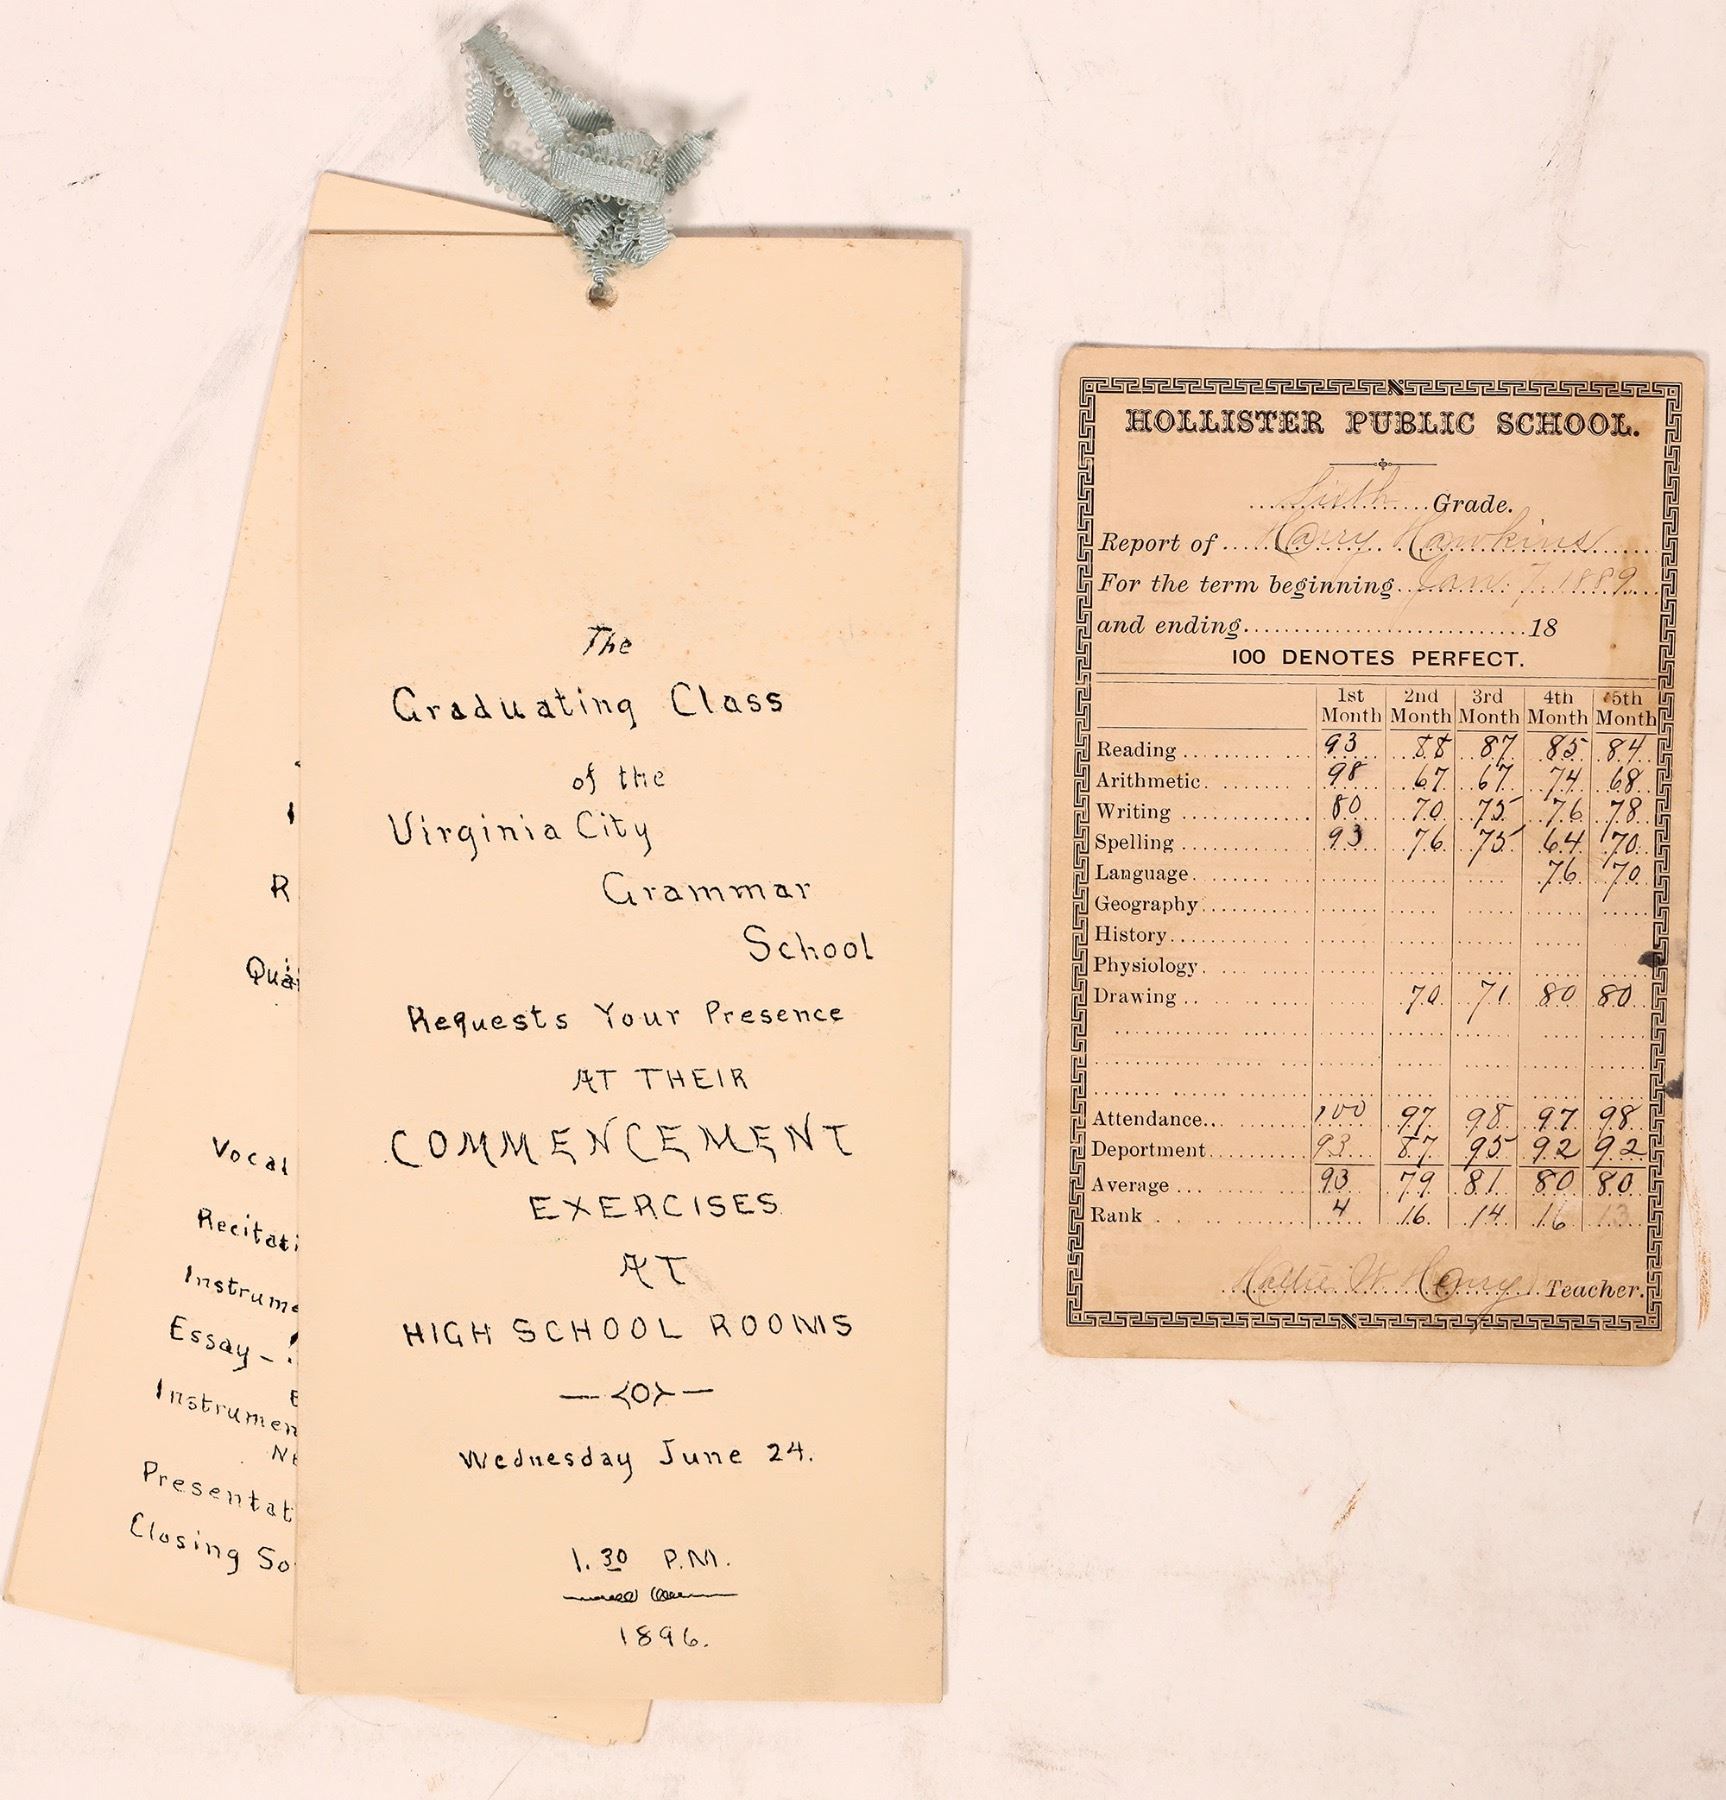 The
Graduating Class
of the
Virginia City
Grammar
School
Requests Your Presence
AT THEIR
COMMENCEMENT
EXERCISES
AT
HIGH SCHOOL ROOMS
Wednesday June 24.
1.30 P.M.
1896.
R
Vocal
Essay –
Closing
HOLLISTER PUBLIC SCHOOL.
Sixth Grade.
Report of Harry Hawkins
For the term beginning Jan. 7, 1889
and ending 18
100 DENOTES PERFECT.
1st Month 2nd Month 3rd Month 4th Month 5th Month
Reading 93 88 87 85 84
Arithmetic 98 67 67 74 68
Writing 80 70 75 76 78
Spelling 93 76 75 64 70
Language 76 70
Geography
History
Physiology
Drawing 70 71 80 80
Attendance 100 97 98 97 98
Deportment 93 87 95 92 92
Average 93 79 81 80 80
Rank 4 16 14 16 13
Hattie W. Henry Teacher.